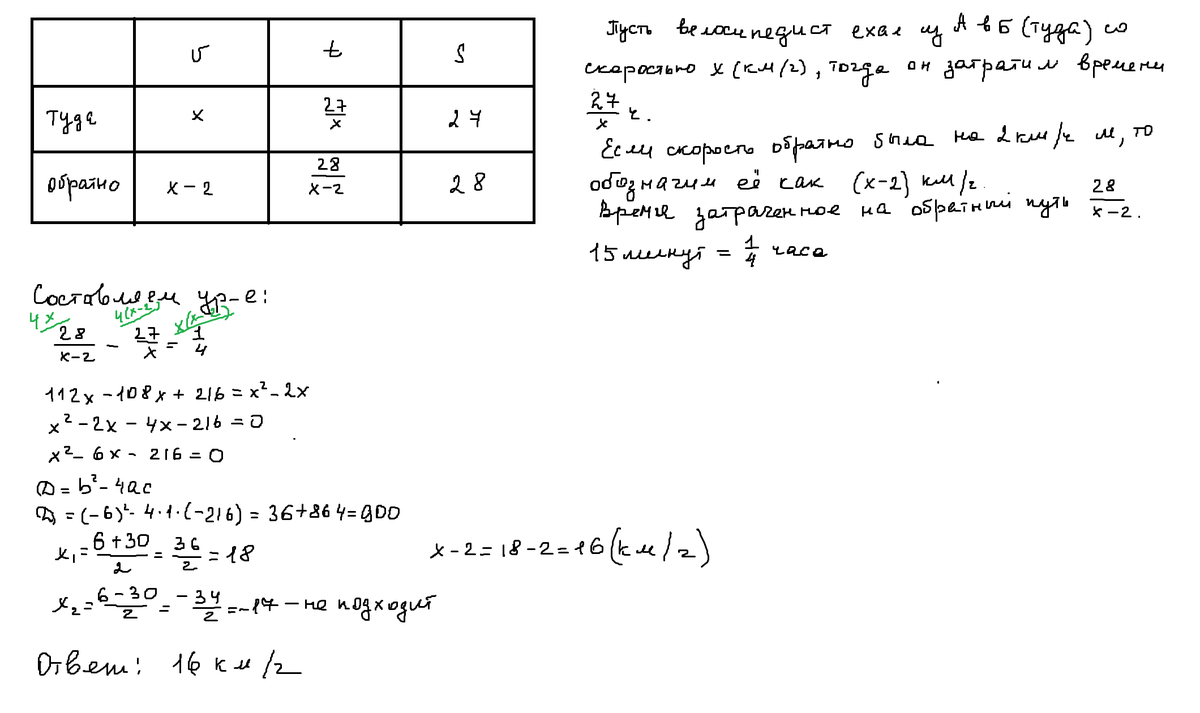 v t S
туда x 27/x 27
обратно x-2 28/(x-2) 28
Пусть велосипедист ехал из А в Б (туда) со
скоростью x (км/ч), тогда он затратил времени
27/x ч.
Если скорость обратно была на 2 км/ч м, то
обозначим её как (x-2) км/ч.
Время затраченное на обратный путь 28/(x-2).
15 минут = 1/4 часа
Составляем ур-е:
4x 4(x-2) x(x-2)
28/(x-2) - 27/x = 1/4
112x - 108x + 216 = x² - 2x
x² - 2x - 4x - 216 = 0
x² - 6x - 216 = 0
D = b² - 4ac
D = (-6)² - 4·1·(-216) = 36 + 864 = 900
x₁ = (6+30)/2 = 36/2 = 18 x-2 = 18-2 = 16 (км/ч)
x₂ = (6-30)/2 = -34/2 = -17 - не подходит
Ответ: 16 км/ч